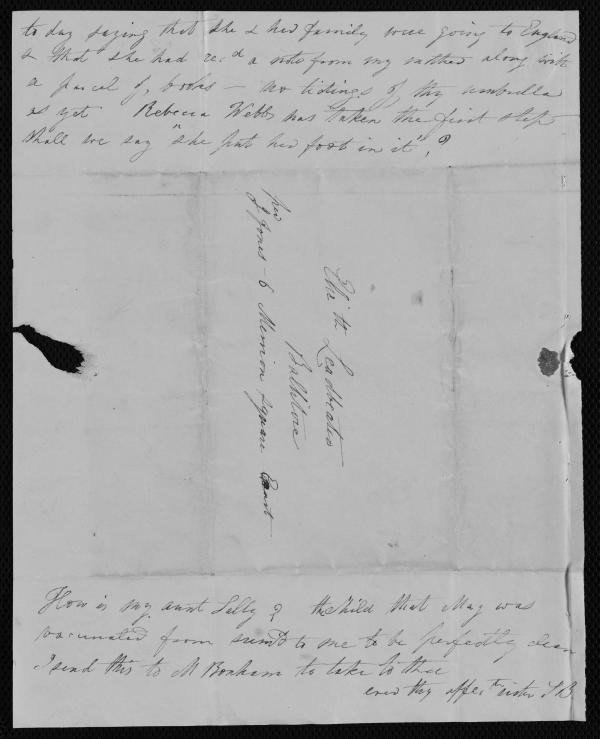 to day saying that she & her family were going to England
& that she had rec.d a note from my father along with
a parcel of books — no tidings of thy umbrella
as yet Rebecca Webb has taken the first step
shall we say "she put her foot in it",?
Eliz th Leadbeater
Ballitore
per
J Jones – 6 Merrion Square East
How is my aunt Lally? the Child that May was
vaccinated from seem'd to me to be perfectly clean
I send this to M Bonham to take to thee
ever thy affec te sister L B.